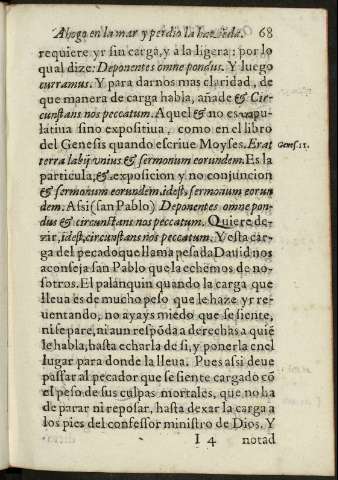 Ahogo en la mar y perdio la hazienda. 68
requiere yr sin carga, y à la ligera: por lo
qual dize: Deponentes omne pondus. Y luego
curramus. Y para darnos mas claridad, de
que manera de carga habla, añade & Cir-
cunstans nos peccatum. Aquel & no es copu-
latiua sino expositiua, como en el libro
del Genesis quando escriue Moyses. Erat Genes. 11.
terra labij vnius & sermonum eorundem. Es la
particula, &. exposicion y no conjuncion
& sermonum eorundem. idest, sermonum eorun
dem. Assi (san Pablo) Deponentes omne pon-
dus & circunstans nos peccatum. Quiere de-
zir, idest, circunstans nos peccatum. Y esta car-
ga del pecado que llama pesada Dauid nos
aconseja san Pablo que la echemos de no-
sotros. El palanquin quando la carga que
lleua es de mucho peso que le haze yr re-
uentando, no ayays miedo que se siente,
ni se pare, ni aun respõda a derechas a quiẽ
le habla, hasta echarla de si, y ponerla en el
lugar para donde la lleua. Pues assi deue
passar al pecador que se siente cargado cõ
el peso de sus culpas mortales, que no ha
de parar ni reposar, hasta dexar la carga a
los pies del confessor ministro de Dios. Y
I 4 notad